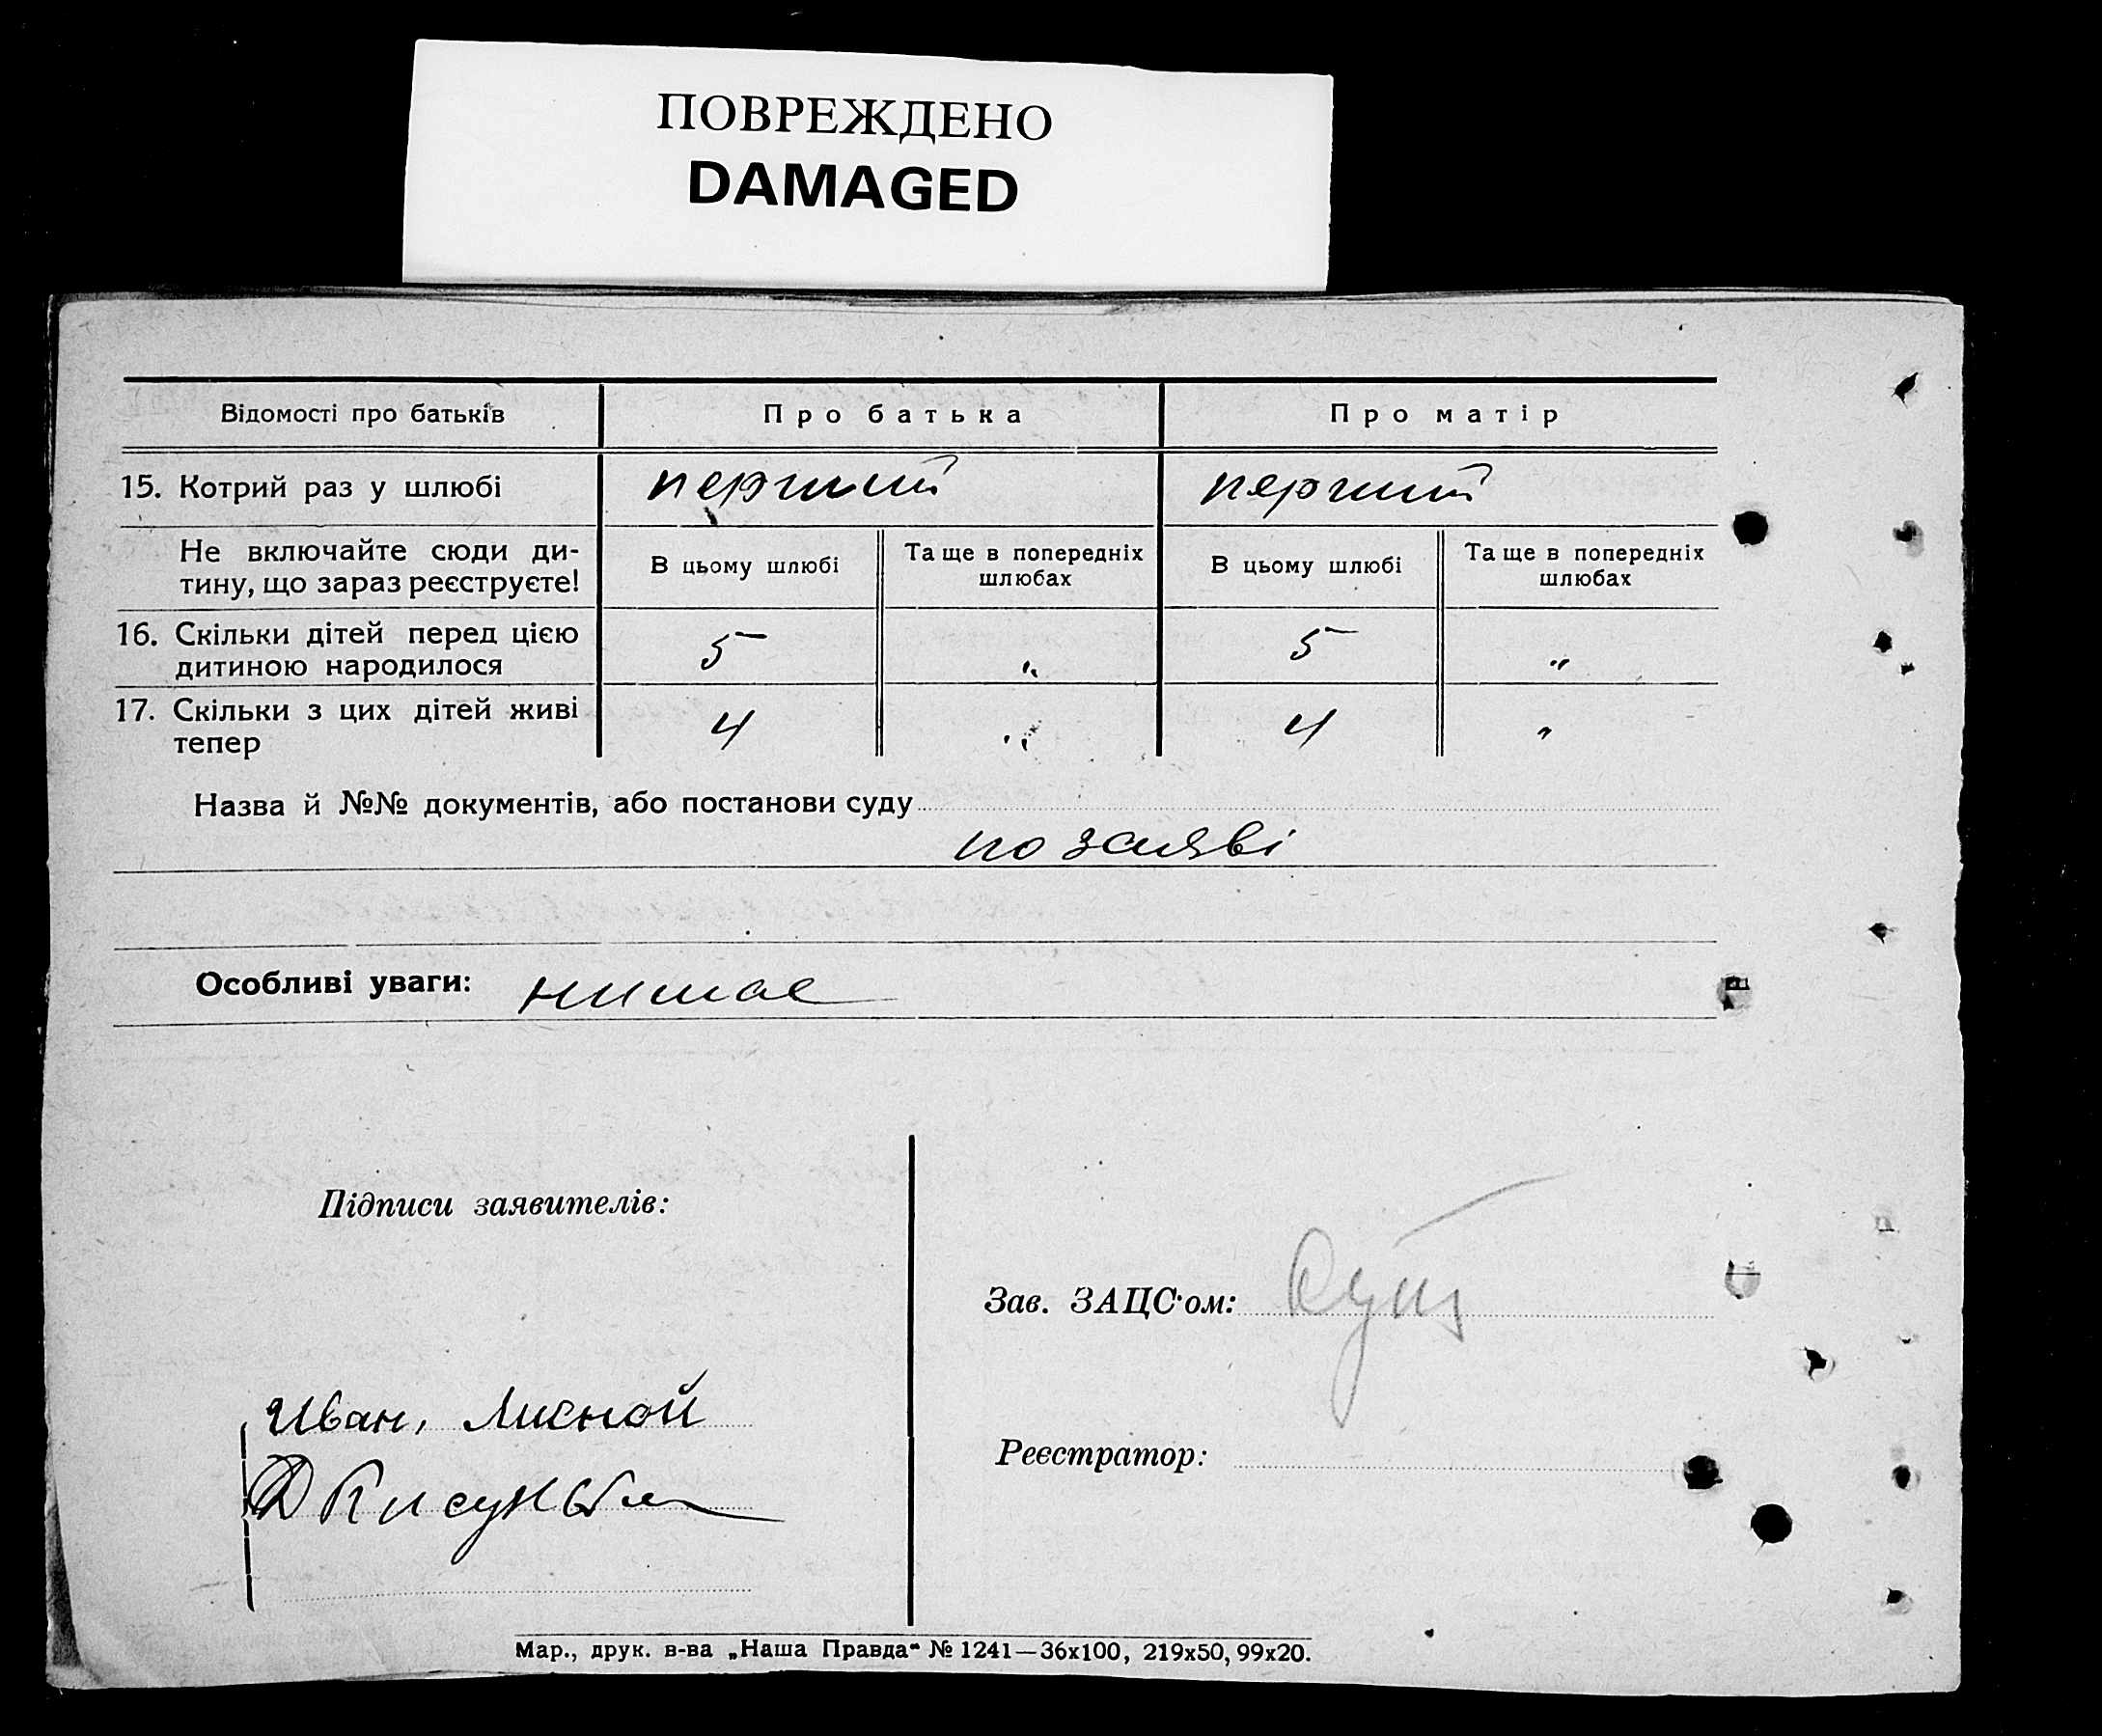 ПОВРЕЖДЕНО
DAMAGED
Відомості про батьків
Про батька
Про матір
15. Котрий раз у шлюбі
перший
перший
Не включайте сюди ди-
тину, що зараз реєструєте!
В цьому шлюбі
Та ще в попередніх
шлюбах
В цьому шлюбі
Та ще в попередніх
шлюбах
16. Скільки дітей перед цією
дитиною народилося
5
"
5
"
17. Скільки з цих дітей живі
тепер
4
"
4
"
Назва й №№ документів, або постанови суду
по заяві
Особливі уваги: нимае
Підписи заявителів:
Зав. ЗАЦС'ом:
Иван,
Реєстратор:
Мар., друк. в-ва „Наша Правда“ № 1241—36х100, 219х50, 99х20.